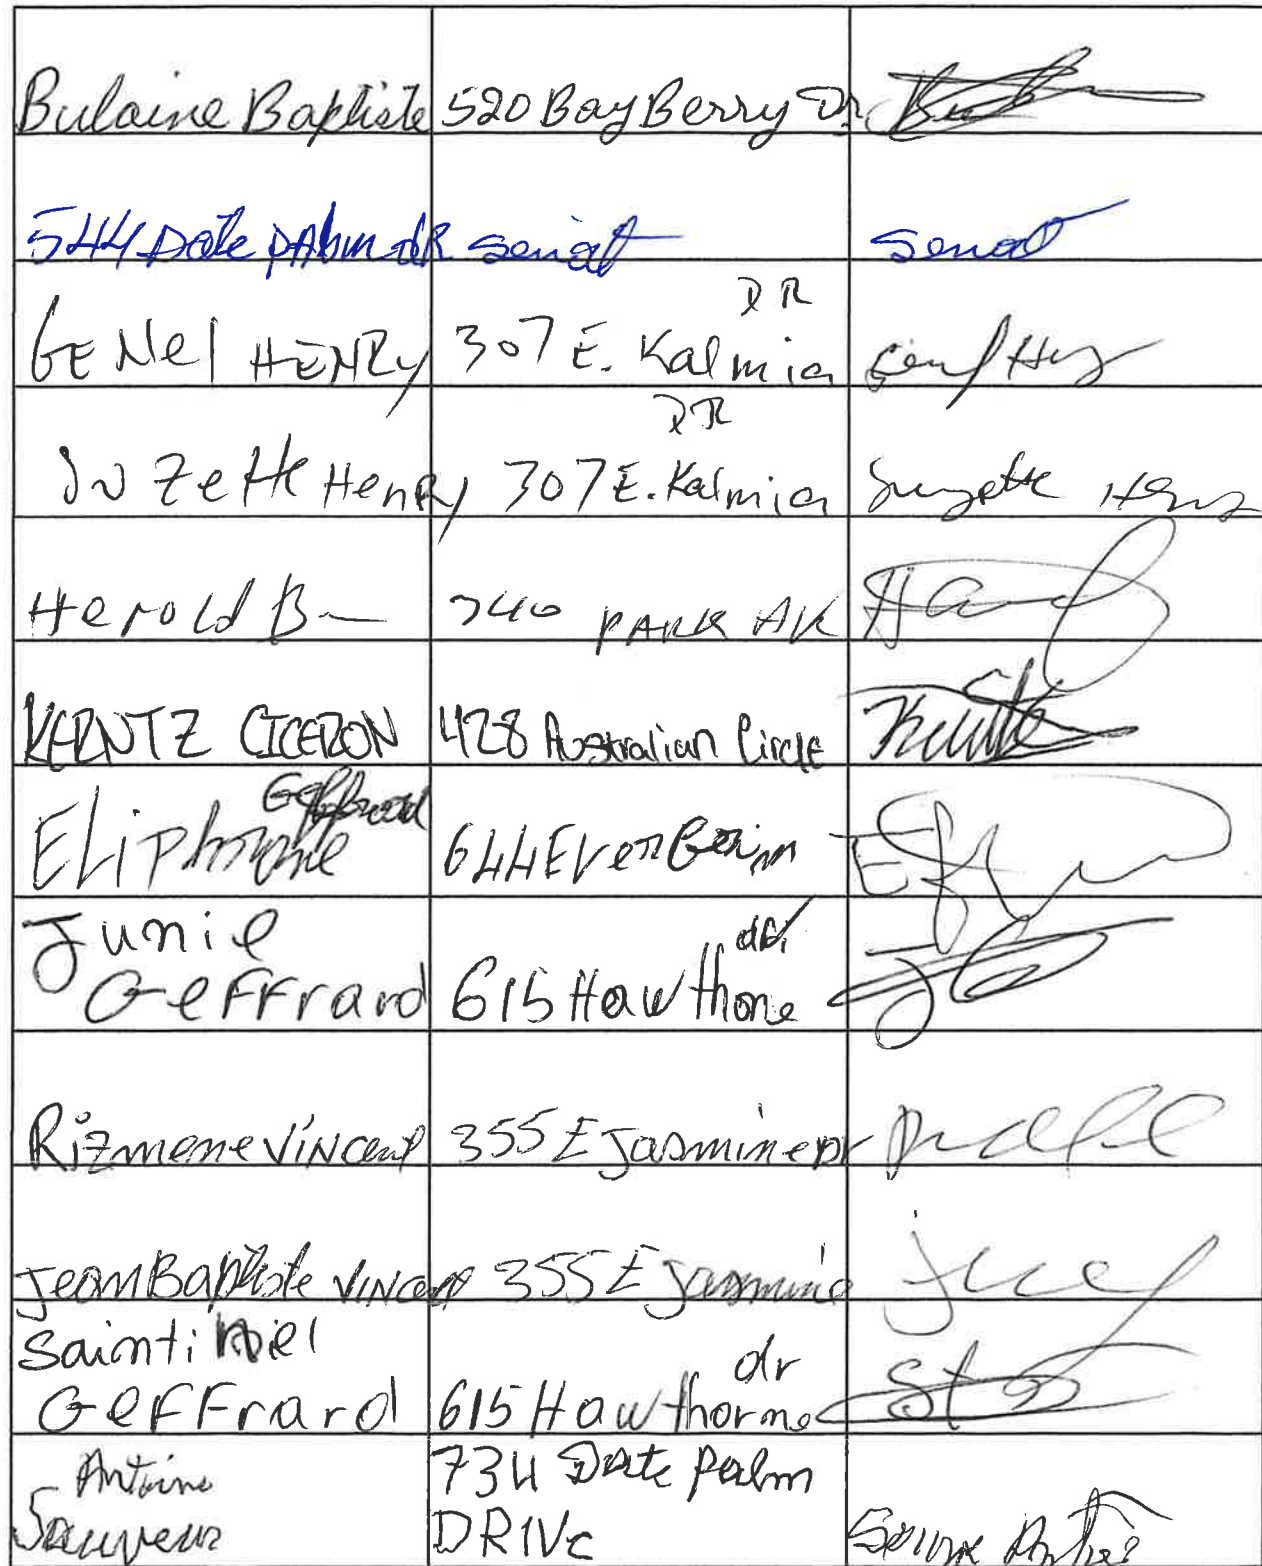 Bulaine Baptiste 520 BayBerry Dr
544 Date pAlm dR senat senat
GENel HENRy 307 E. Kalmia DR
Suzette Henry 307 E. Kalmia DR Suzette Henry
Herold B 240 PARK AV
KERNTZ CICERON 428 Australian Circle
Geffrard
644 EverGrin
Junie
Geffrard 615 Hawthone dr.
Rizmene Vincent 355 E Jasmine Dr
Jean Baptiste Vincent 355 E Jasmine
Saintiniel
GeFFrard 615 Hawthorne dr
Antoine
Sauveur
734 Date Palm
DRIVe